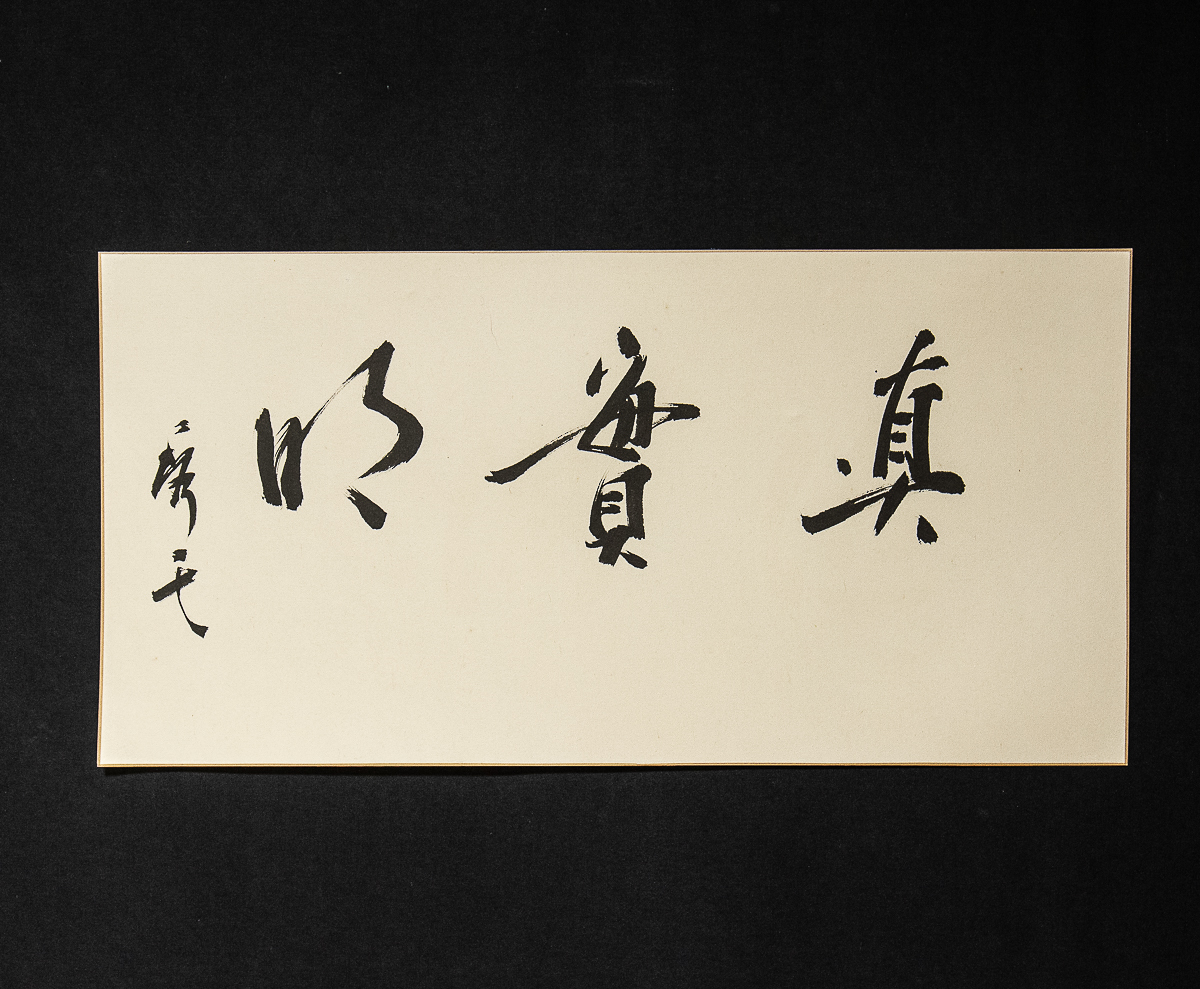 真實明